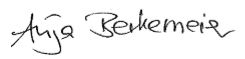 Anja Berkemeier